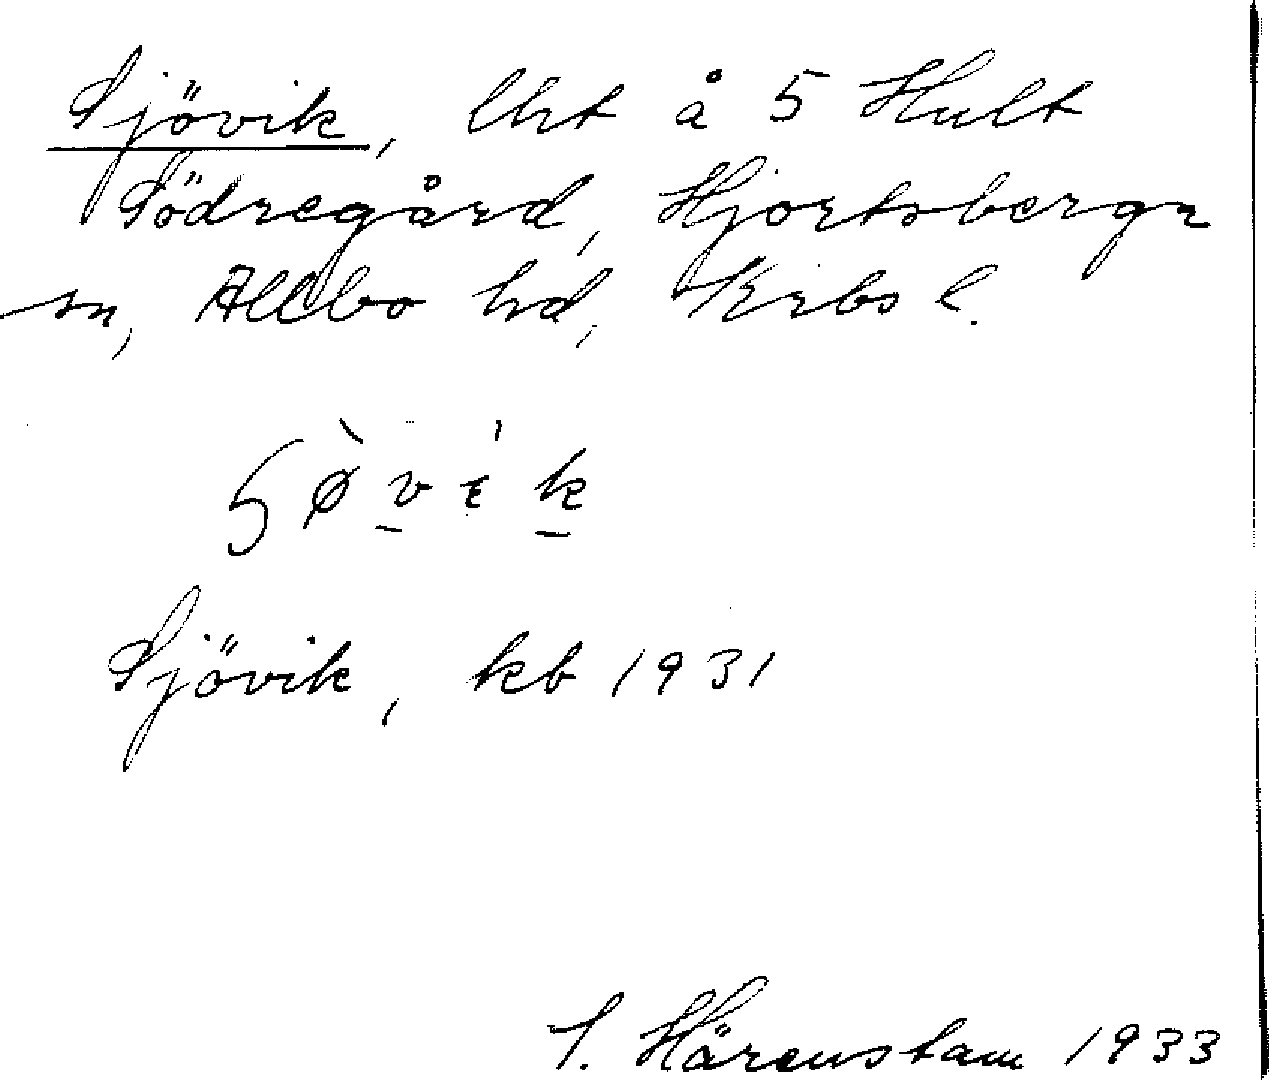 Sjövik, lht å 5 Hult
Södregård, Hjortsberga
sn, Allbo hd, Krbs l.
Sjövik, kb 1931
S. Härenstam 1933